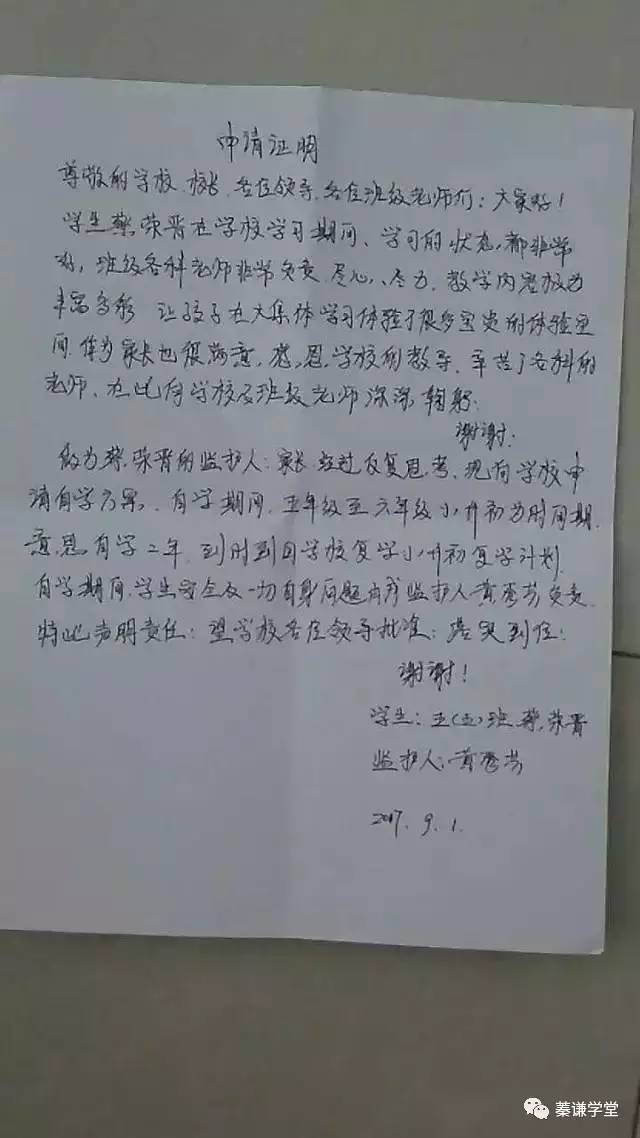 申请证明
尊敬的学校、校长、各位领导、各位班级老师们：大家好！
学生蔡荣晋在学校学习期间、学习的状态，都非常
好，班级各科老师非常负责、尽心、尽力，教学内容极为
丰富多彩 让孩子在大集体学习体验了很多宝贵的体验空
间，作为家长也很满意，感恩学校的教导，辛苦了各科的
老师，在此向学校及班级老师深深鞠躬：
谢谢：
做为蔡荣晋的监护人：家长 经过反复思考，现向学校申
请自学方案，自学期间，五年级至六年级小升初为时间期，
意思自学二年，到时到回学校复学小升初复学计划，
自学期间，学生安全及一切自身问题由我监护人黄秀芬负责，
特此声明责任：望学校各位领导批准：落实到位：
谢谢！
学生：五（五）班 蔡荣晋
监护人：黄秀芬
2017.9.1.
蓁谦学堂